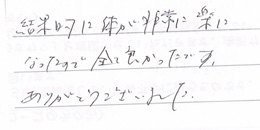 結果的に体が非常に楽に
なったので全て良かったです。
ありがとうございました。